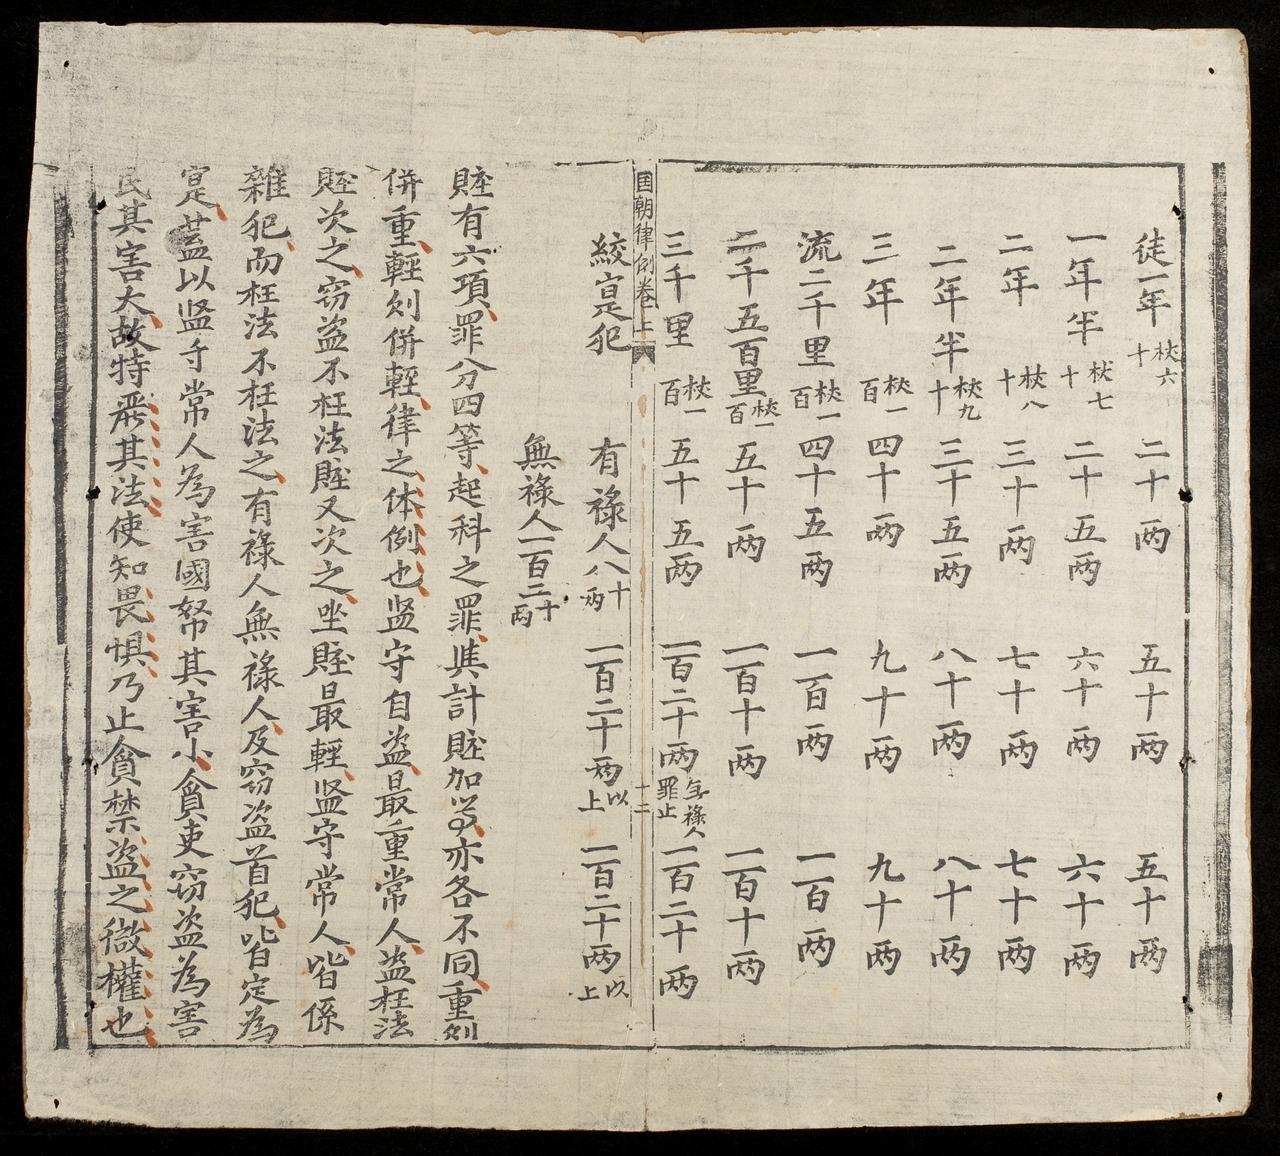 徒一年 杖六十 二十两 五十两 五十两
一年半 杖七十 二十五两 六十两 六十两
二年 杖八十 三十两 七十两 七十两
二年半 杖九十 三十五两 八十两 八十两
三年 杖一百 四十两 九十两 九十两
流二千里 杖一百 四十五两 一百两 一百两
二千五百里 杖一百 五十两 一百十两 一百十两
三千里 杖一百 五十五两 一百二十两 無禄人罪止 一百二十两
国朝律例卷上 十二
絞寔犯 有禄人八十两 一百二十两以上 一百二十两以上
無禄人一百二十两
賍有六項罪分四等起科之罪與計賍加等亦各不同重则
併重輕则併輕律之体例也監守自盗最重常人盗枉法
賍次之窃盗不枉法賍又次之坐賍最輕監守常人皆係
雜犯而枉法不枉法之有禄人無禄人及窃盗首犯皆定為
寔盖以監守常人為害國帑其害小貪吏窃盗為害
民其害大故特嚴其法使知畏惧乃止貪禁盗之微權也